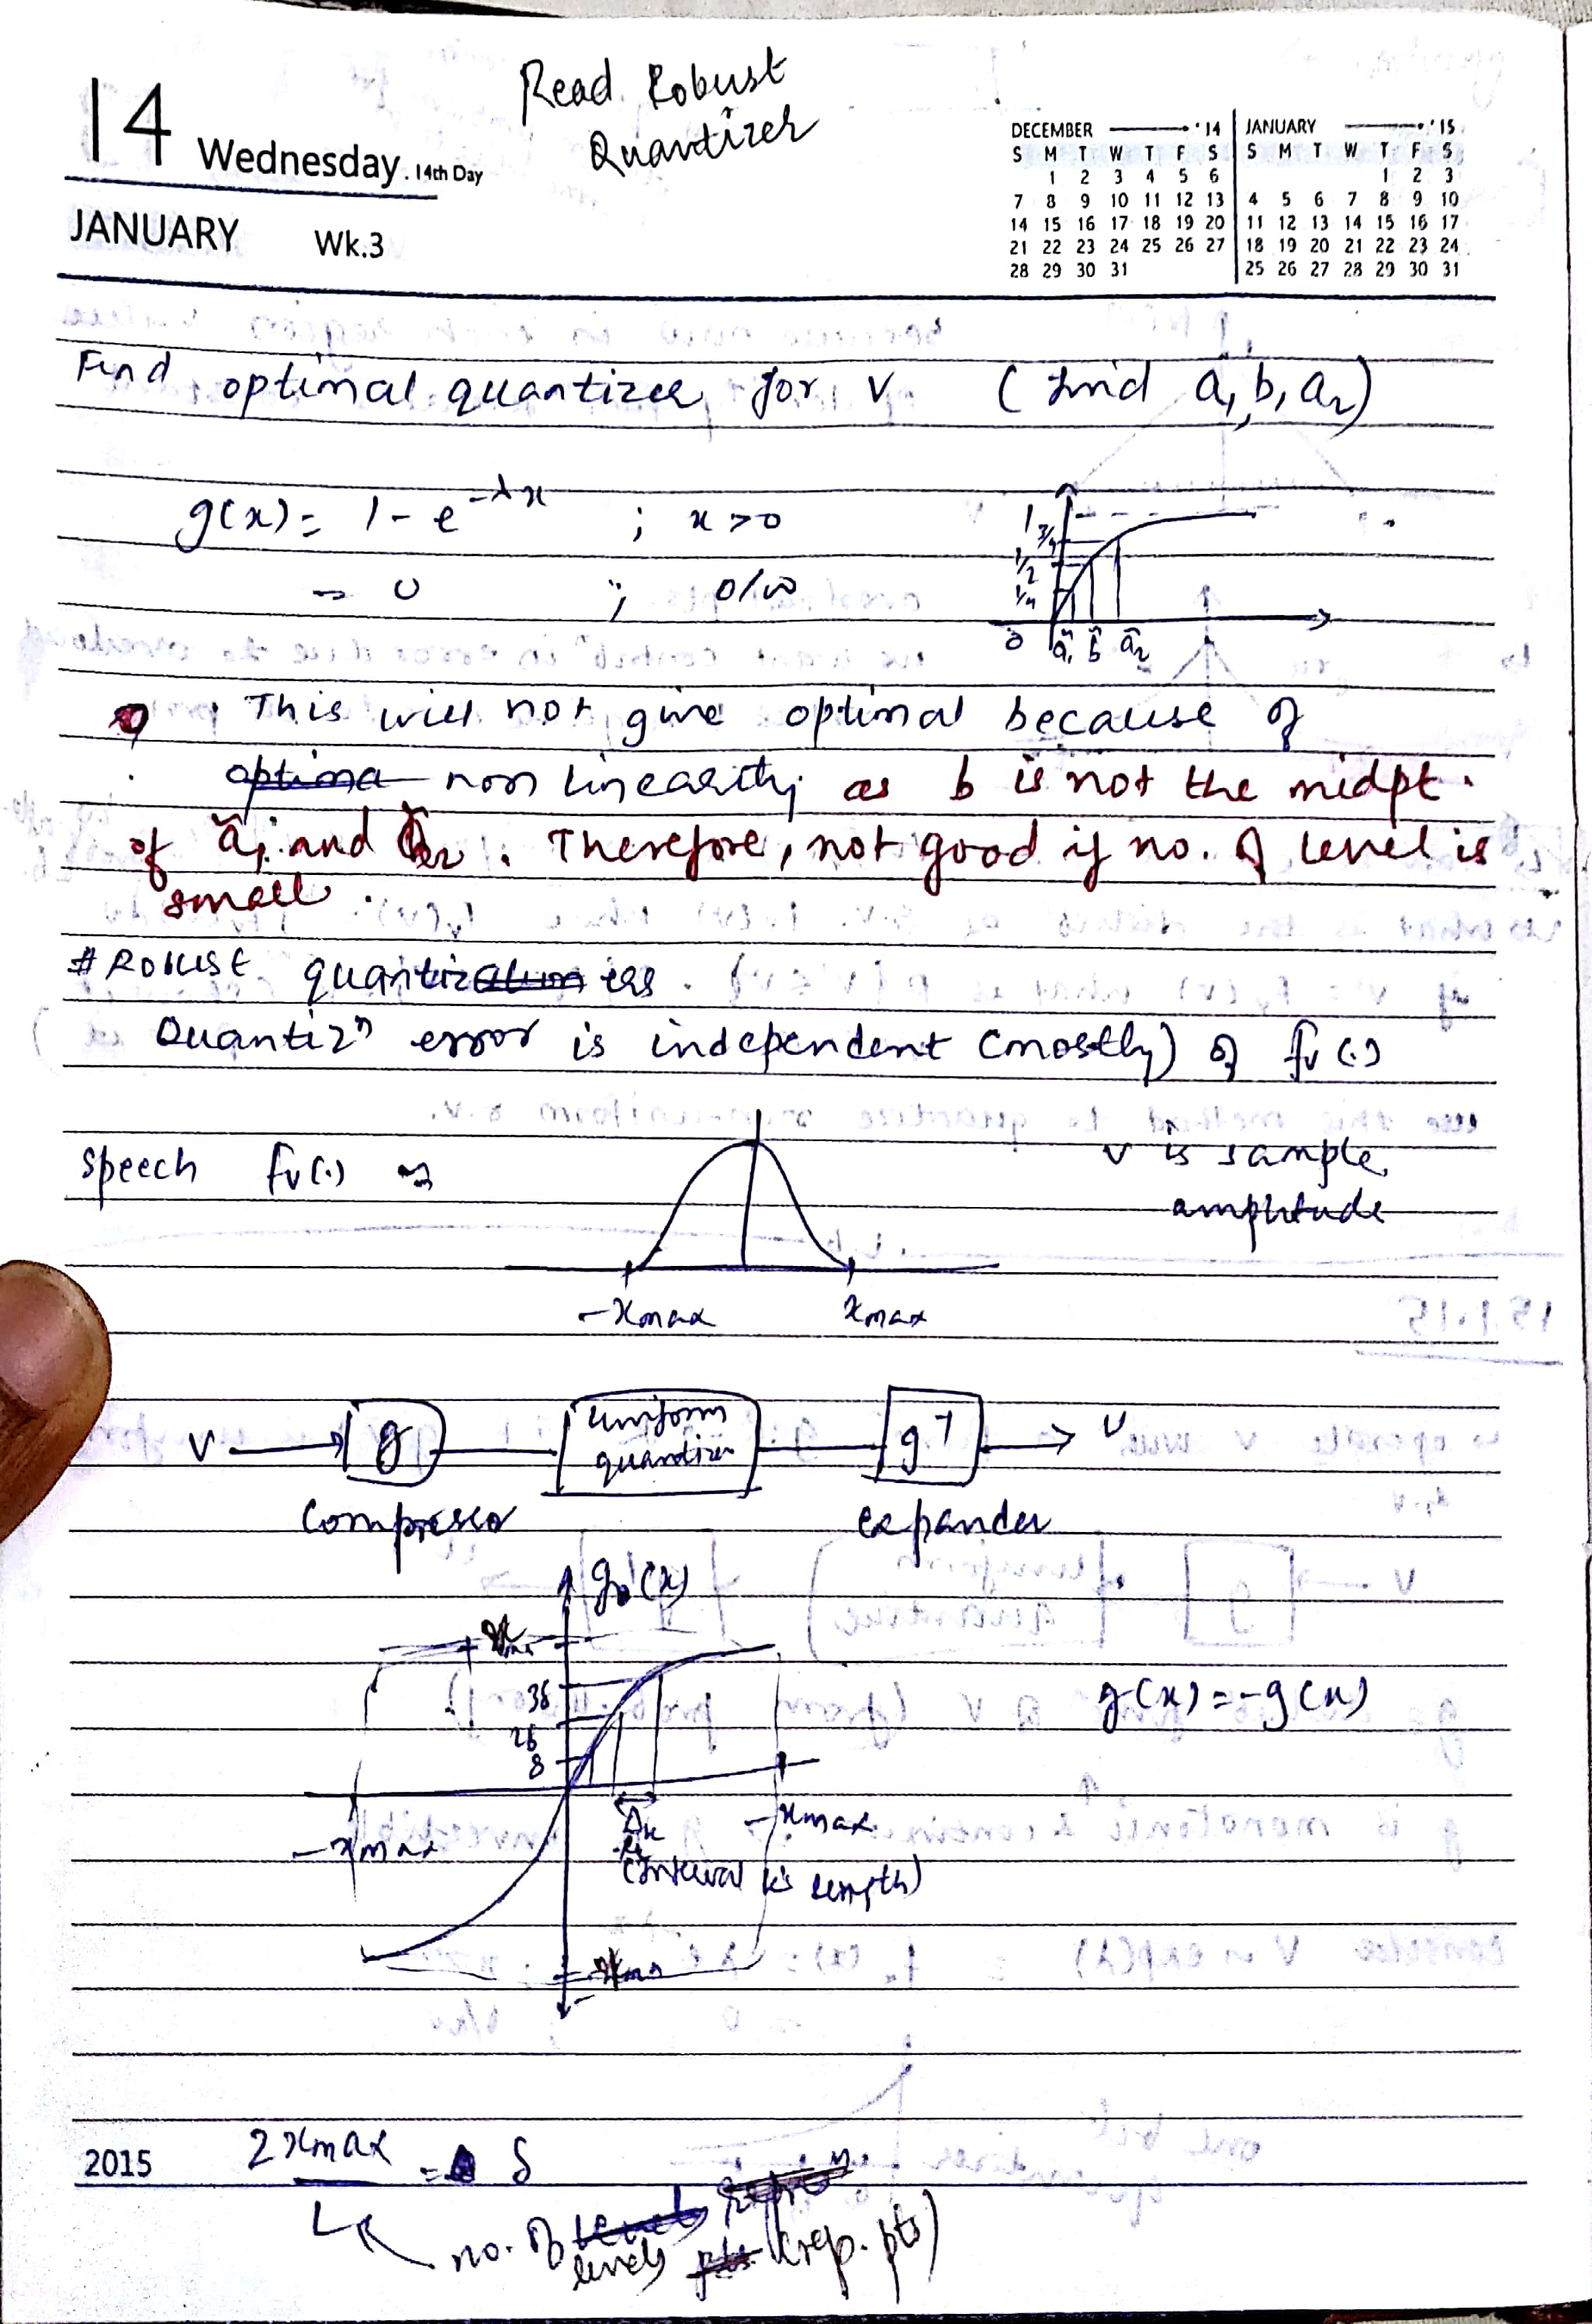 Read Robust
Quantizer
14 Wednesday. 14th Day
JANUARY Wk.3
DECEMBER '14
S M T W T F S
1 2 3 4 5 6
7 8 9 10 11 12 13
14 15 16 17 18 19 20
21 22 23 24 25 26 27
28 29 30 31
JANUARY '15
S M T W T F S
1 2 3
4 5 6 7 8 9 10
11 12 13 14 15 16 17
18 19 20 21 22 23 24
25 26 27 28 29 30 31
Find optimal quantizer for v (find a₁, b, a₂)
g(x) = 1 - e^-λx ; x>0
= 0 ; o/w
1
3/4
1/2
1/4
0 ã₁ b̃ ã₂
This will not give optimal because of
optima non linearity as b is not the midpt.
of ã₁ and ã₂. Therefore, not good if no. of level is
small.
# Robust quantization ers
Quantizⁿ error is independent (mostly) of fv(.)
speech fv(.) v is sample
amplitude
-xmax xmax
v g uniform quantizer g⁻¹ v
Compressor expander
g(x)
xmax
3δ
2δ
δ
g(x) = -g(x)
-xmax Δk -xmax
(interval k's length)
xmax
2015 2xmax = δ
L no. of levels (rep. pts)